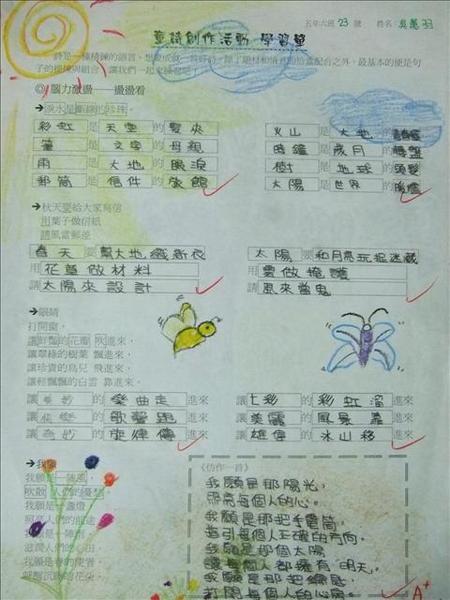 五年六班 23 號 姓名
童詩創作活動 學習單
詩是一種精練的語言，想要成就一首好詩，除了題材和情意的恰當配合之外，最基本的便是句
子的錘煉與組合，讓我們一起來練習吧！
◎ 國力激盪——擂擂看
➔淚水是斷線的珍珠。
彩虹 是 天空 的 髮夾
火山 是 大地 的
筆 是 文字 的 母親
時鐘 是 歲月 的 轉盤
雨 是 大地 的 眼淚
樹 是 地球 的 頭髮
郵筒 是 信件 的 旅館
太陽 是 世界 的
➔秋天要給大家寫信
用葉子做信紙
請風當郵差
春天 要 幫大地織新衣
用 花草做材料
請 太陽來設計
太陽 要 和月亮玩捉迷藏
用 雲做掩護
請 風來當鬼
➔眼睛
打開窗，
讓鮮豔的花瓣 吹進來，
讓翠綠的樹葉 飄進來，
讓珍貴的鳥兒 飛進來，
讓輕飄飄的白雲 靠進來。
讓 美妙 的 樂曲走 進來
讓 的 歌聲跑 進來
讓 奇妙 的 旋律傳 進來
讓 七彩 的 彩虹溜 進來
讓 美麗 的 風景靠 進來
讓 雄偉 的 冰山移 進來
➔我願
我願是一陣風，
吹散 人們的憂愁
我願是一盞燈
照亮人們的前途
我願是一陣雨
滋潤人們的心田
我願是春的使者
《仿作一首》
我願是那陽光，
照亮每個人的心。
我願是那把手電筒，
指引每個人正確的方向，
我願是那個太陽
讓每個人都擁有 明天，
我願是那把鑰匙
打開每個人的心房
A+